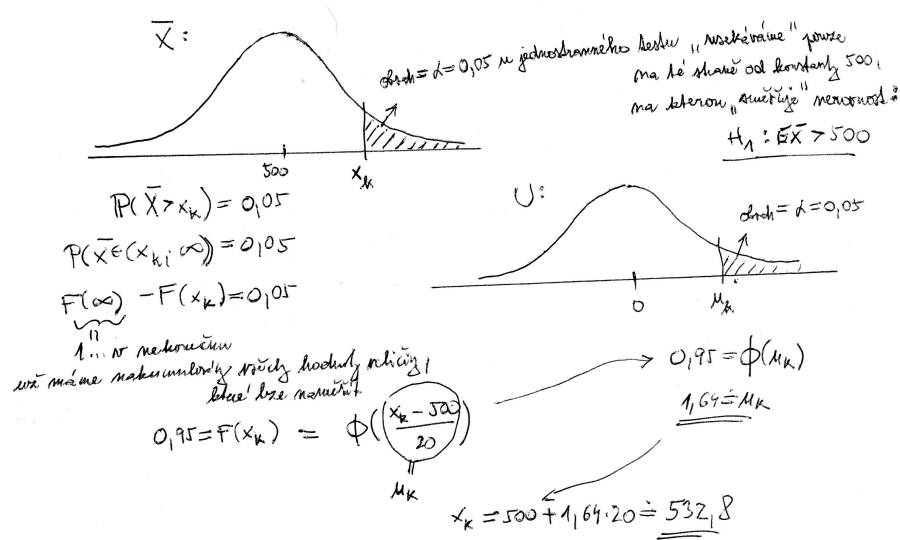 X̄:
obsah = α = 0,05 u jednostranného testu „usekáváme" pouze
na té straně od konstanty 500,
na kterou „směřuje" nerovnost:
H₁: EX̄ > 500
500
x_k
P(X̄ > x_k) = 0,05
P(X̄ ∈ (x_k; ∞)) = 0,05
F(∞) - F(x_k) = 0,05
1... v nekonečnu
už máme nakumulovány všechny hodnoty veličiny,
které lze naměřit
0,95 = F(x_k) = Φ((x_k - 500)/20)
u_k
U:
obsah = α = 0,05
0
u_k
0,95 = Φ(u_k)
1,64 ≐ u_k
x_k = 500 + 1,64·20 ≐ 532,8